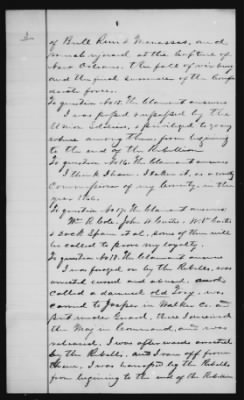 3
of Bull Run & Manassas, and
much rejoiced at the Capture of
New Orleans, & the fall of Vicksburg
and the final surrender of the Confed
erate forces.
To question No 15. The Claimant answers
I was perfect respected by the
Union Soldiers, & privileged to go any
where among them from beginning
to the end of the Rebellion
To question No 16. The Claimant answers
I think I have. I taken it, as a county
Commissioner of my County, in the
year 1866.
To question No 17. The Claimant answers
Wm R. Cole, John H. Curtis, W. R. Curtis
& Jack Spain et al, some of them will
be called to prove my loyalty.
To question No 18. The Claimant answers
I was forged on by the Rebells, was
arrested, cursed and abused, and
called a damned old Tory, was
carried to Jasper in Walker Co. and
put under Guard, there I noticed
the Maj in Command, and was
released. I was afterwards arrested
by the Rebells, and I ran off from
them, I was harassed by the Rebells
from beginning to the end of the Rebellion